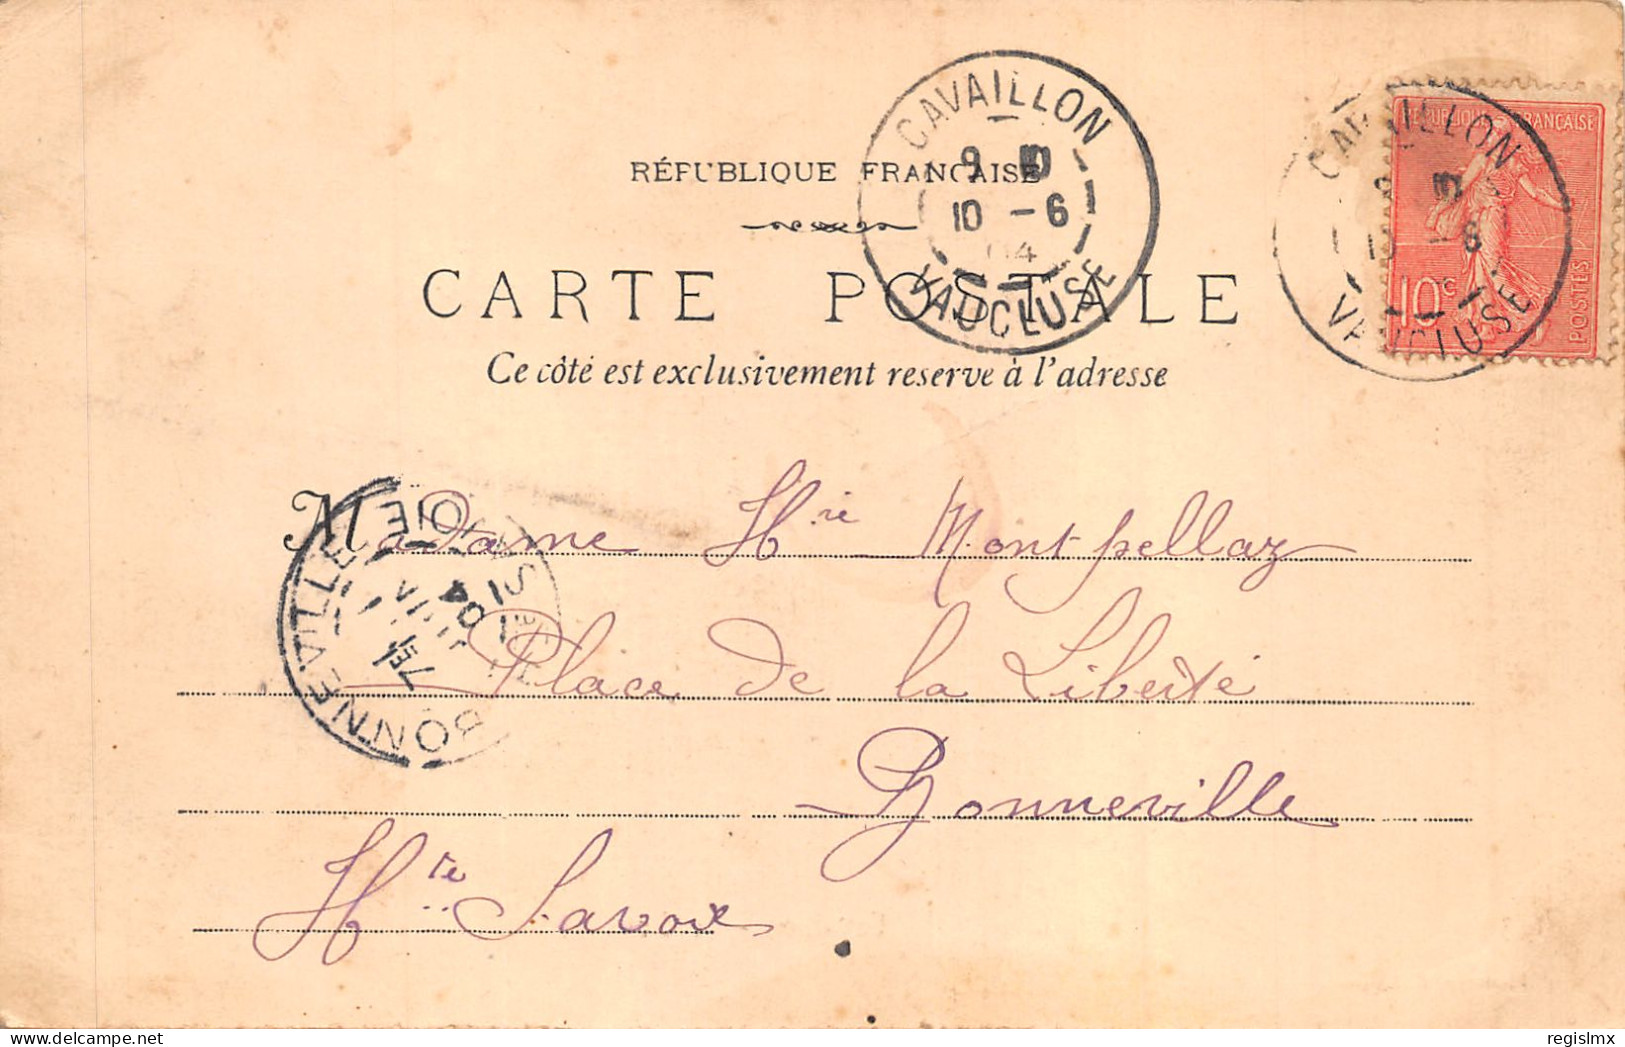 RÉPUBLIQUE FRANÇAISE
CARTE POSTALE
Ce côté est exclusivement reserve à l'adresse
CAVAILLON
9 10
10 - 6
04
VAUCLUSE
CAVAILLON
10 - 6
VAUCLUSE
REPUBLIQUE FRANÇAISE
10c
POSTES
Madame Hri Montpellaz
Place de la Liberté
Bonneville
Hte Savoie
BONNEVILLE
SAVOIE
04
regislmx